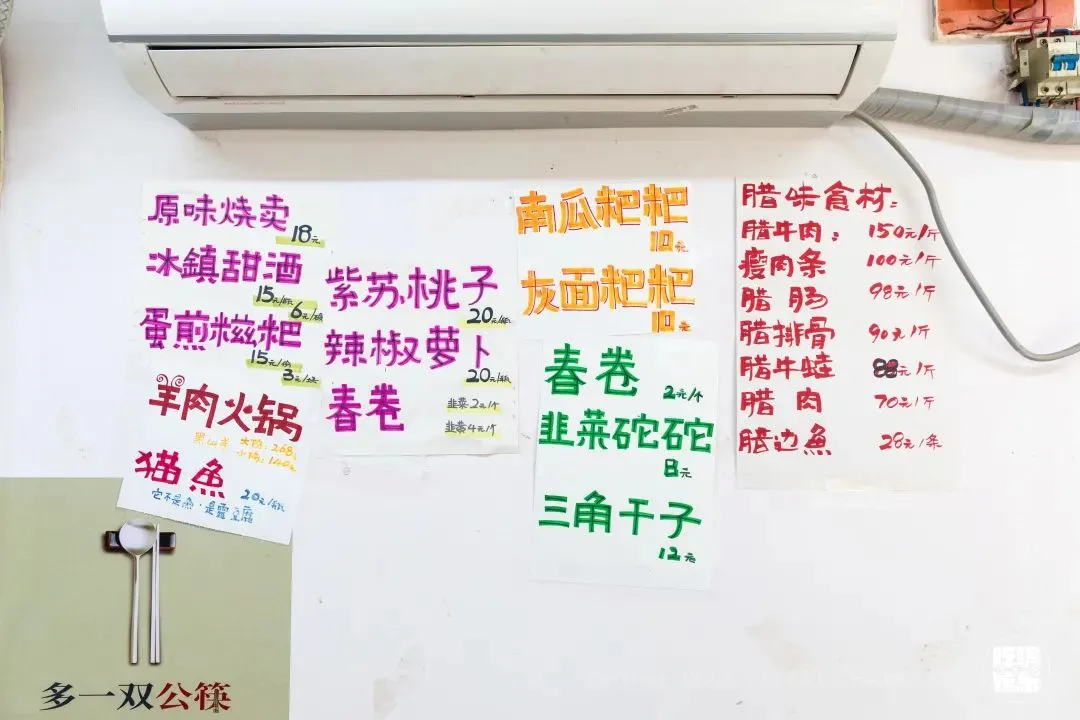 原味烧卖
18元
冰鎮甜酒
15元/瓶
6元/碗
蛋煎糍粑
15元/份
3元/块
羊肉火锅
黑山羊 大锅：268元
小锅：140元
猫魚
20元/瓶
它不是魚·是霉豆腐
紫苏桃子
20元/瓶
辣椒萝卜
20元/瓶
春卷
韭菜2元/个
韭黄4元/个
南瓜粑粑
10元
灰面粑粑
10元
春卷
2元/个
韭菜砣砣
8元
三角干子
12元
腊味食材：
腊牛肉： 150元/斤
瘦肉条 100元/斤
腊肠 98元/斤
腊排骨 90元/斤
腊牛蛙 88元/斤
腊肉 70元/斤
腊边魚 28元/条
多一双公筷